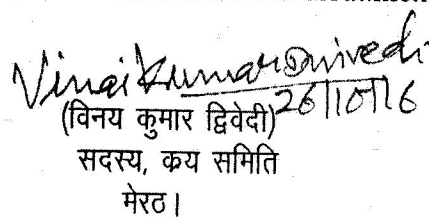 Vinai Kumar Dwivedi
26/10/16
(विनय कुमार द्विवेदी)
सदस्य, कय समिति
मेरठ।